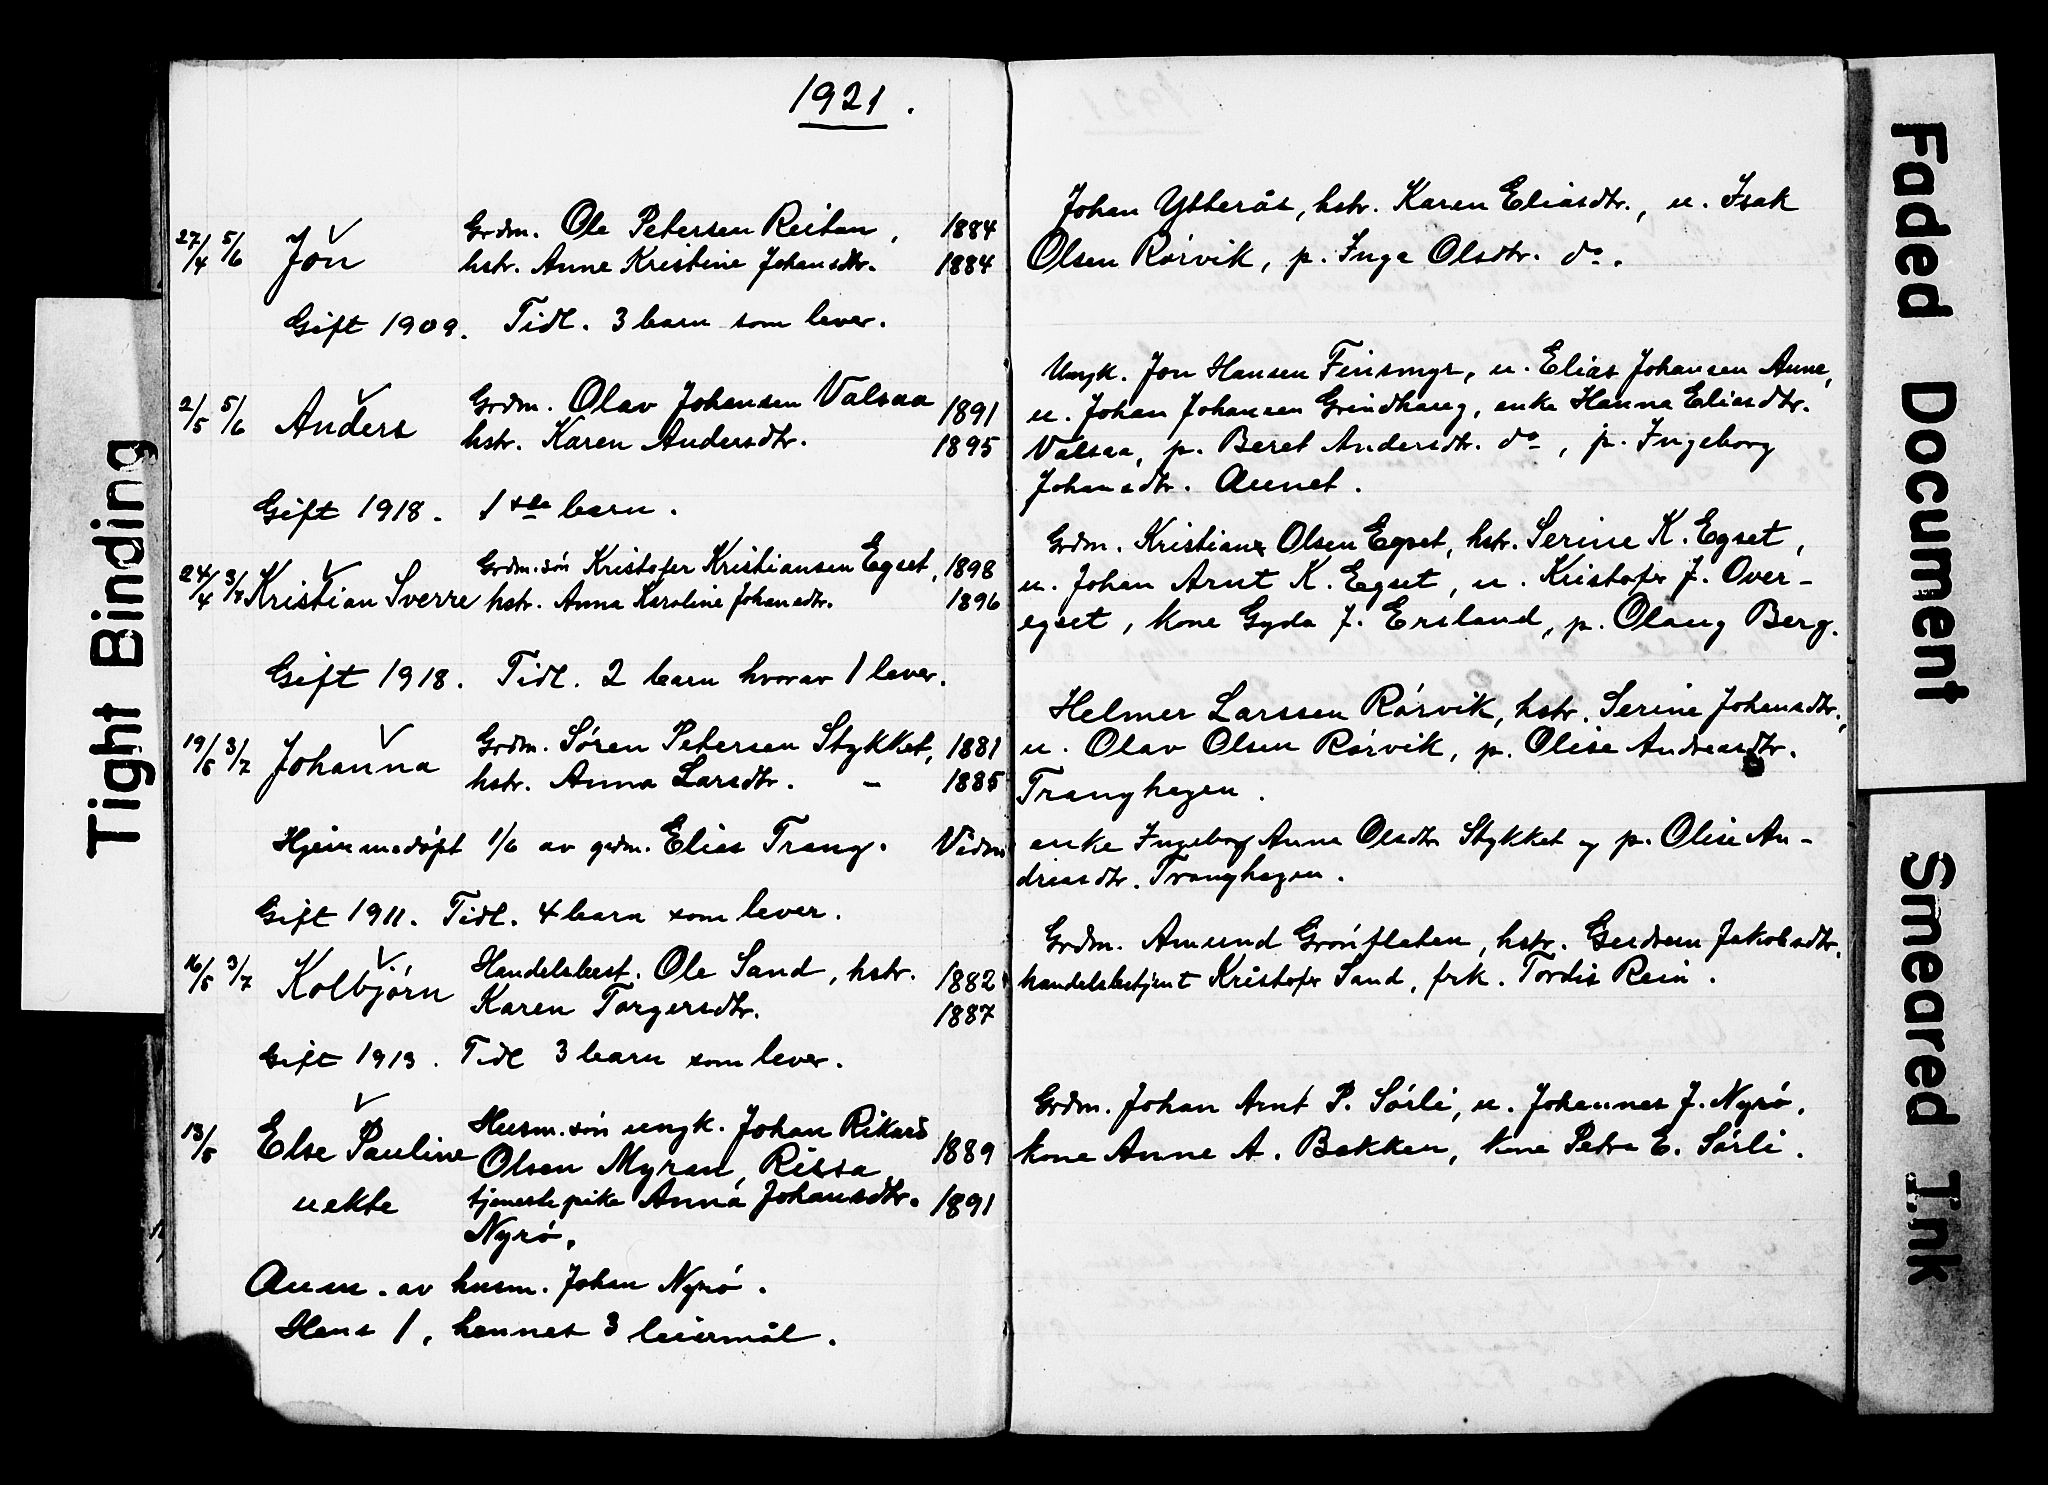 1921.
27/4 5/6 Jon Grdm. Ole Petersen Reitan, 1884
hstr. Anne Kristine Johansdtr. 1884
Gift 1909. Tidl. 3 barn som lever.
2/5 5/6 Anders Grdm. Olav Johansen Valsaa 1891
hstr. Karen Andersdtr. 1895
Gift 1918. 1ste barn.
24/4 3/7 Kristian Sverre Grdm.søn Kristofer Kristiansen Egset, 1898
hstr. Anna Karoline Johansdtr. 1896
Gift 1918. Tidl. 2 barn hvorav 1 lever.
19/5 3/7 Johanna Grdm. Søren Petersen Stykket, 1881
hstr. Anna Larsdtr. – 1885
Hjemmedøpt 1/6 av grdm. Elias Trang. Vidm
Gift 1911. Tidl. 4 barn som lever.
16/5 3/7 Kolbjørn Handelsbest. Ole Sand, hstr. 1882
Karen Torgersdtr. 1887
Gift 1913. Tidl 3 barn som lever.
13/5 Else Pauline Husm.søn ungk. Johan Rikard
Olsen Myran, Rissa 1889
uekte tjenestepike Anna Johansdtr. 1891
Nyrø.
Anm. av husm. Johan Nyrø.
Hans 1, hennes 3 leiermål.
Johan Ytterås, hstr. Karen Eliasdtr., u. Isak
Olsen Rørvik, p. Inga Olsdtr. do.
Ungk. Jon Hansen Finsmyr, u. Elias Johansen Aune,
u. Johan Johansen Grindhaug, enke Hanna Eliasdtr.
Valsaa, p. Beret Andersdtr. do, p. Ingeborg
Johansdtr. Aunet.
Grdm. Kristian Olsen Egset, hstr. Serine K. Egset,
u. Johan Arnt K. Egset, u. Kristofer J. Over-
egset, kone Gyda J. Ersland, p. Olaug Berg.
Helmer Larssen Rørvik, hstr. Serine Johansdtr.,
u. Olav Olsen Rørvik, p. Olise Andreasdtr.
Tranghagen.
enke Ingeborg Anna Olsdtr Stykket og p. Olise An-
dreasdtr. Tranghagen.
Grdm. Amund Grønflaten, hstr. Gudrun Jakobsdtr.
handelsbestjent Kristofer Sand, frk. Tordis Rein.
Grdm. Johan Arnt P. Sørli, u. Johannes J. Nyrø,
kone Anne A. Bakken, kone Petra E. Sørli.
Tight Binding
Faded Document
Smeared Ink